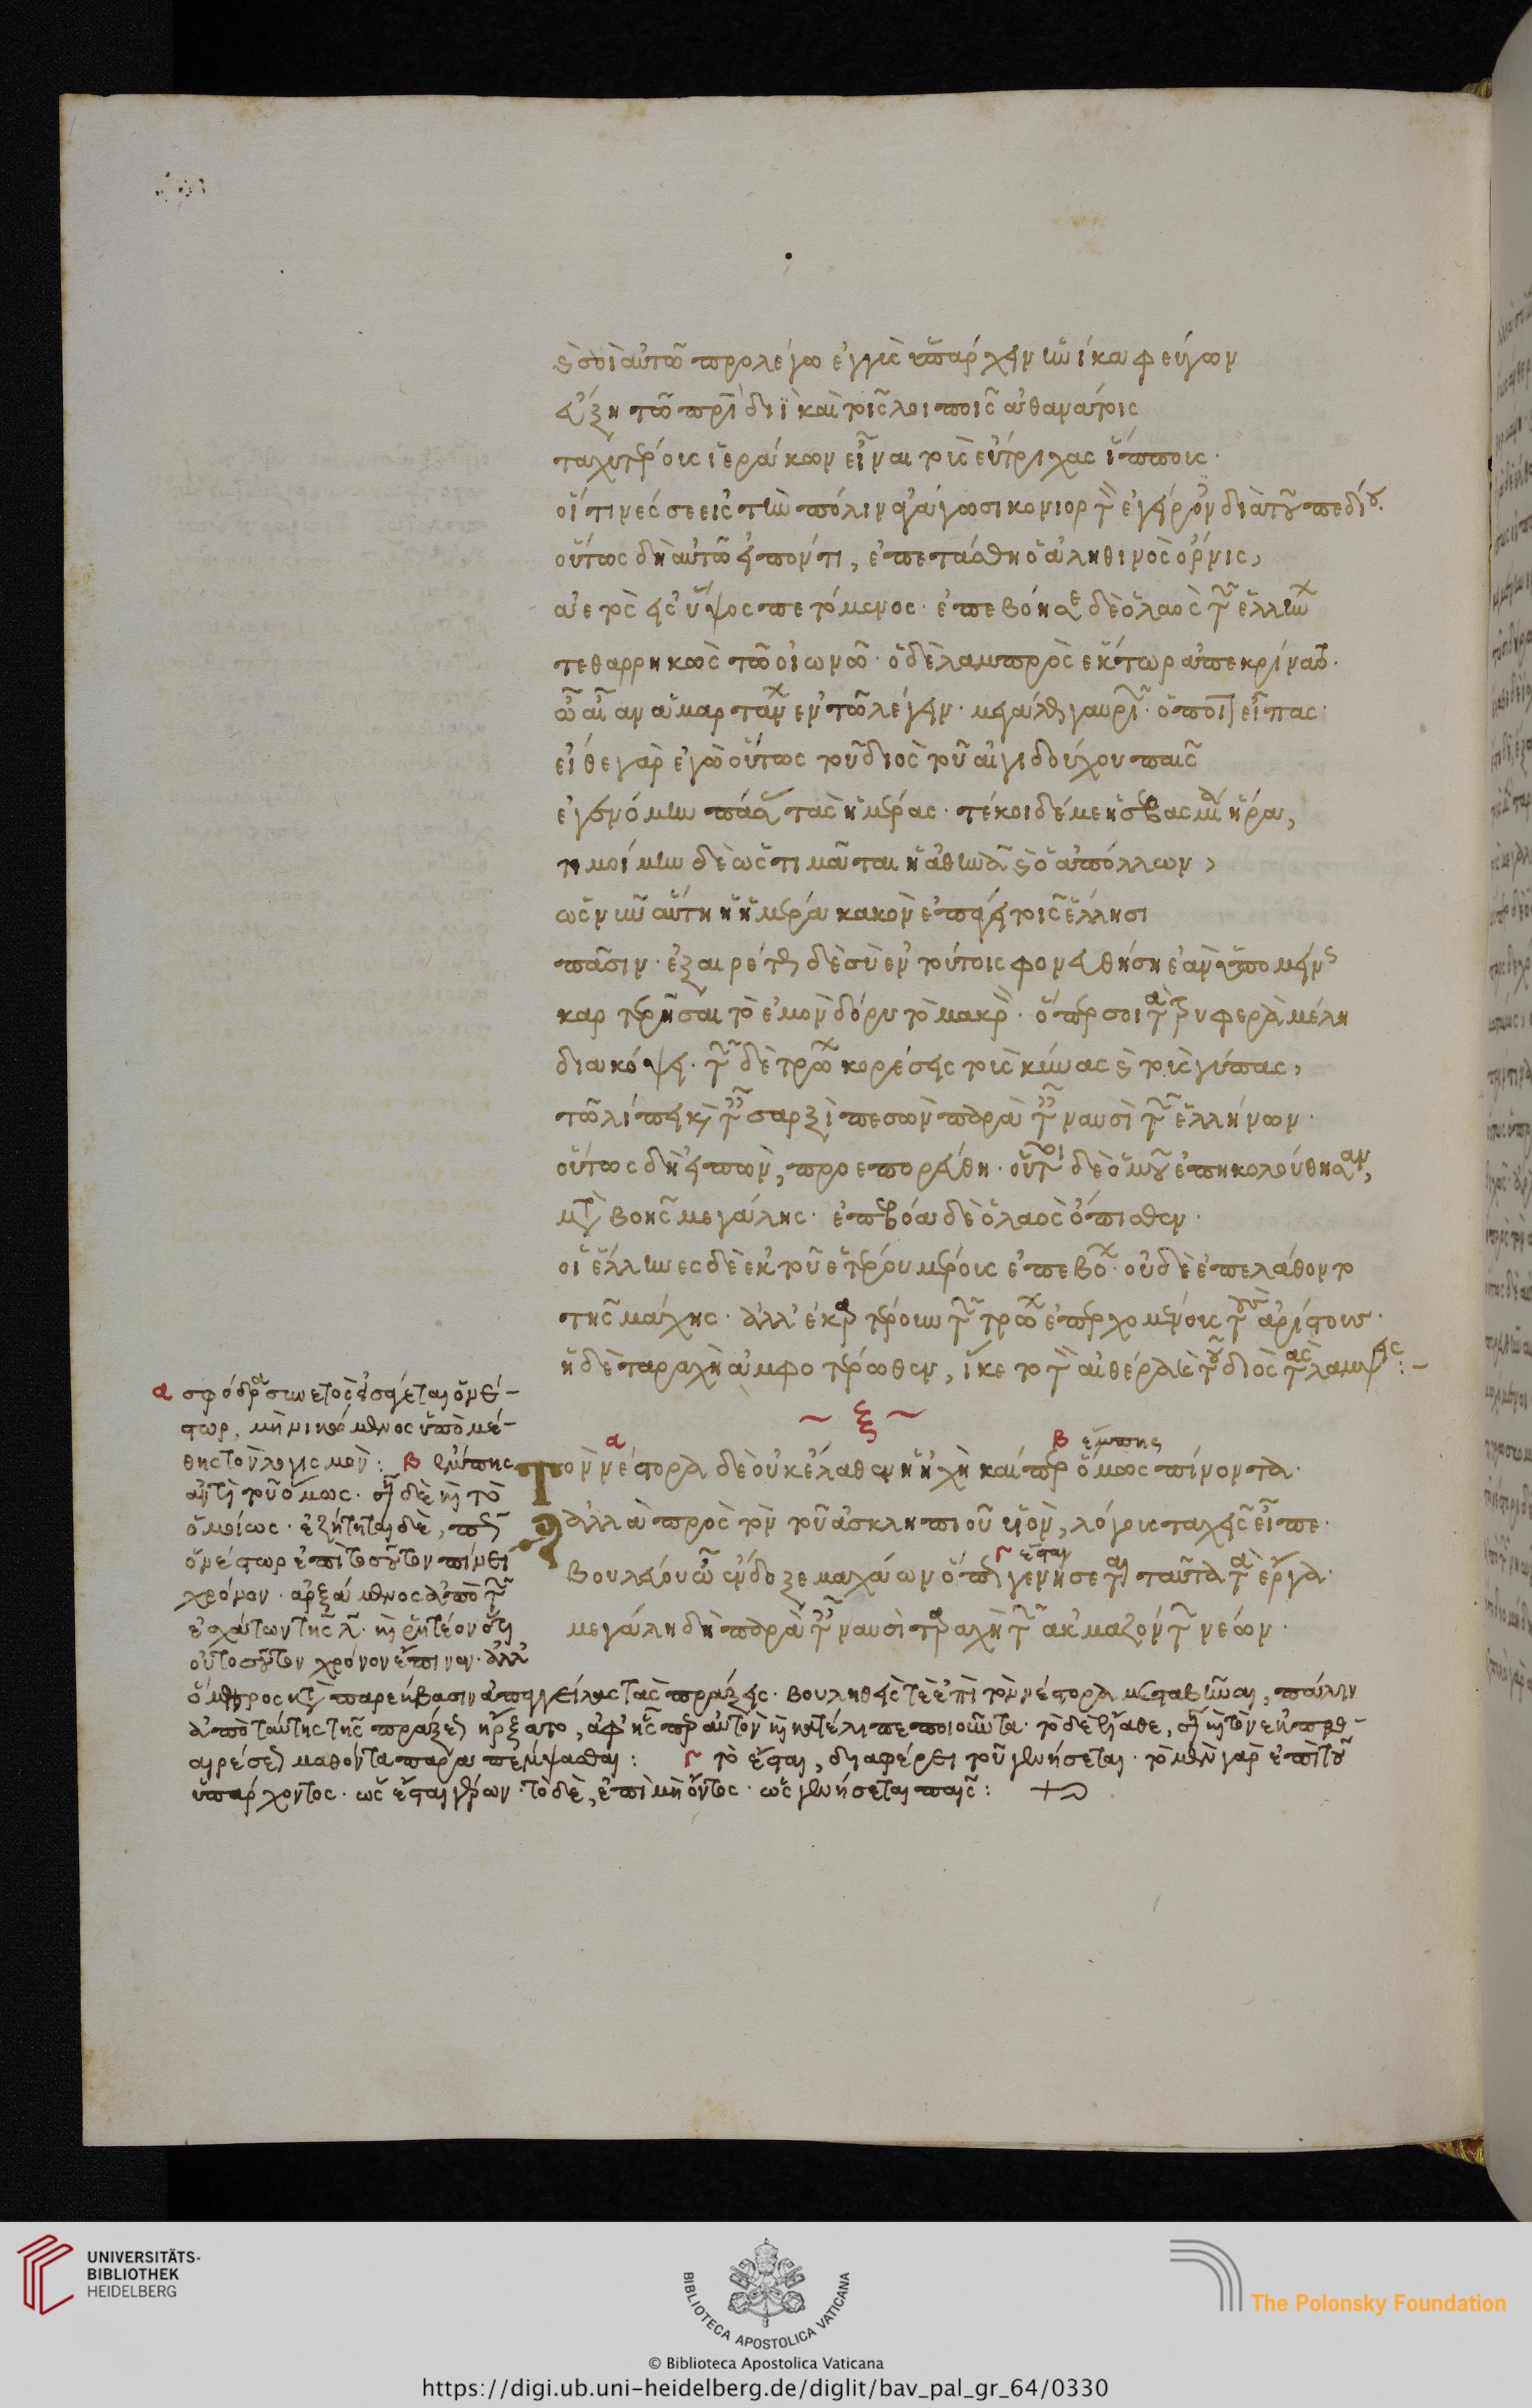 καὶ σοὶ αὐτῷ προλέγω ἐγγὺς ὑπάρχειν ἡνίκα φεύγων
εὔξη τῷ πατρὶ διὶ καὶ τοῖς λοιποῖς ἀθανάτοις
ταχυτέρους ἱεράκων εἶναι τοὺς εὔτριχας ἵππους·
οἵτινές σε εἰς τὴν πόλιν ἀγάγωσι κονιορτὸν ἐγείροντες διὰ τοῦ πεδίου.
οὕτως δὴ αὐτῷ εἰπόντι, ἐπετάσθη ὁ ἀληθινὸς ὄρνις,
ἀετὸς εἰς ὕψος πετόμενος· ἐπεβόησε δὲ ὁ λαὸς τῶν ἑλλήνων
τεθαρρηκὼς τῷ οἰωνῷ· ὁ δὲ λαμπρὸς ἕκτωρ ἀπεκρίνατο·
ὦ αἶαν ἁμαρτάνων ἐν τῷ λέγειν· μεγάλως γαυριῶν· ὁποῖον εἶπας·
εἴθε γὰρ ἐγὼ οὕτως τοῦ διὸς τοῦ αἰγιδούχου παῖς
ἐγενόμην πάσας τὰς ἡμέρας· τέκοι δέ με ἡ σεβασμία ἥρα,
τιμοίμην δὲ ὡς τιμᾶται ἡ ἀθηνᾶ καὶ ὁ ἀπόλλων,
ὡς νῦν αὕτη ἡ ἡμέρα κακὸν ἐποίσει τοῖς ἕλλησι
πᾶσιν· ἐξαιρέτως δὲ σὺ ἐν τούτοις φονευθήση ἐὰν ὑπομείνης
καρτερῆσαι τὸ ἐμὸν δόρυ τὸ μακρὸν· ὅπερ σοι τὰ τρυφερὰ μέλη
διακόψει· τῶν δὲ τρώων κορέσεις τοὺς κύνας καὶ τοὺς γύπας,
τῷ λίπει καὶ ταῖς σαρξὶ πεσὼν παρὰ ταῖς ναυσὶ τῶν ἑλλήνων·
οὕτως δὴ εἰπὼν, προεπορεύθη· οὗτοι δὲ ὁμοῦ ἐπηκολούθησαν,
μετὰ βοῆς μεγάλης· ἐπεβόα δὲ ὁ λαὸς ὄπισθεν·
οἱ ἕλληνες δὲ ἐκ τοῦ ἑτέρου μέρους ἐπεβόων· οὐδὲ ἐπελάθοντο
τῆς μάχης· ἀλλ' ἐκαρτέρουν τῶν τρώων ἐπερχομένους τοὺς ἀρίστους·
ἡ δὲ ταραχὴ ἀμφοτέρωθεν, ἵκετο τὸν αἰθέρα καὶ τοῦ διὸς τὰς λαμπ:-
~ ξ ~
α β ἔμπης
Τὸν νέστορα δὲ οὐκ ἔλαθεν ἡ ἠχὴ καίπερ ὅμως πίνοντα·
ἀλλὰ πρὸς τὸν τοῦ ἀσκληπιοῦ υἱὸν, λόγους ταχεῖς εἶπε·
γ ἔσται
βουλεύου ὦ ἔνδοξε μαχάων ὅπως γενήσεται ταῦτα τὰ ἔργα·
μεγάλη δὴ παρὰ ταῖς ναυσὶ ταραχὴ τῶν ἀκμαζόντων νέων·
α σφόδρα συνετὸς εἰσάγεται ὁ νέ-
στωρ, μὴ νικώμενος ὑπὸ μέ-
θης τὸν λογισμὸν: β ἔμπης
ἀντὶ τοῦ ὅμως· σημαίνει δὲ καὶ τὸ
ὁμοίως· ἐζήτηται δὲ, πῶς
ὁ νέστωρ ἐπὶ τοσοῦτον πίνει
χρόνον· ἀρξάμενος ἀπὸ τῶν
ἐσχάτων τῆς λ· καὶ ῥητέον ὅτι
οὐ τοσοῦτον χρόνον ἔπινον· ἀλλ'
ὅμηρος κατὰ παρέκβασιν ἀπαγγείλας τὰς πράξεις· βουληθείς τε ἐπὶ τὸν νέστορα μεταβῆναι, πάλιν
ἀπὸ ταύτης τῆς πράξεως ἤρξατο, ἀφ' ἧς περ αὐτὸν καὶ κατέλιπε ποιοῦντα· τὸ δὲ
μαθόντα παρὰ πέμψασθαι: γ τὸ ἔσται, διαφέρει τοῦ γενήσεται· τὸ μὲν γὰρ ἐπὶ τοῦ
ὑπάρχοντος· ὡς ἔσται γέρων· τὸ δὲ, ἐπὶ μὴ ὄντος· ὡς γενήσεται παῖς:
UNIVERSITÄTS-
BIBLIOTHEK
HEIDELBERG
BIBLIOTECA APOSTOLICA VATICANA
The Polonsky Foundation
© Biblioteca Apostolica Vaticana
https://digi.ub.uni-heidelberg.de/diglit/bav_pal_gr_64/0330